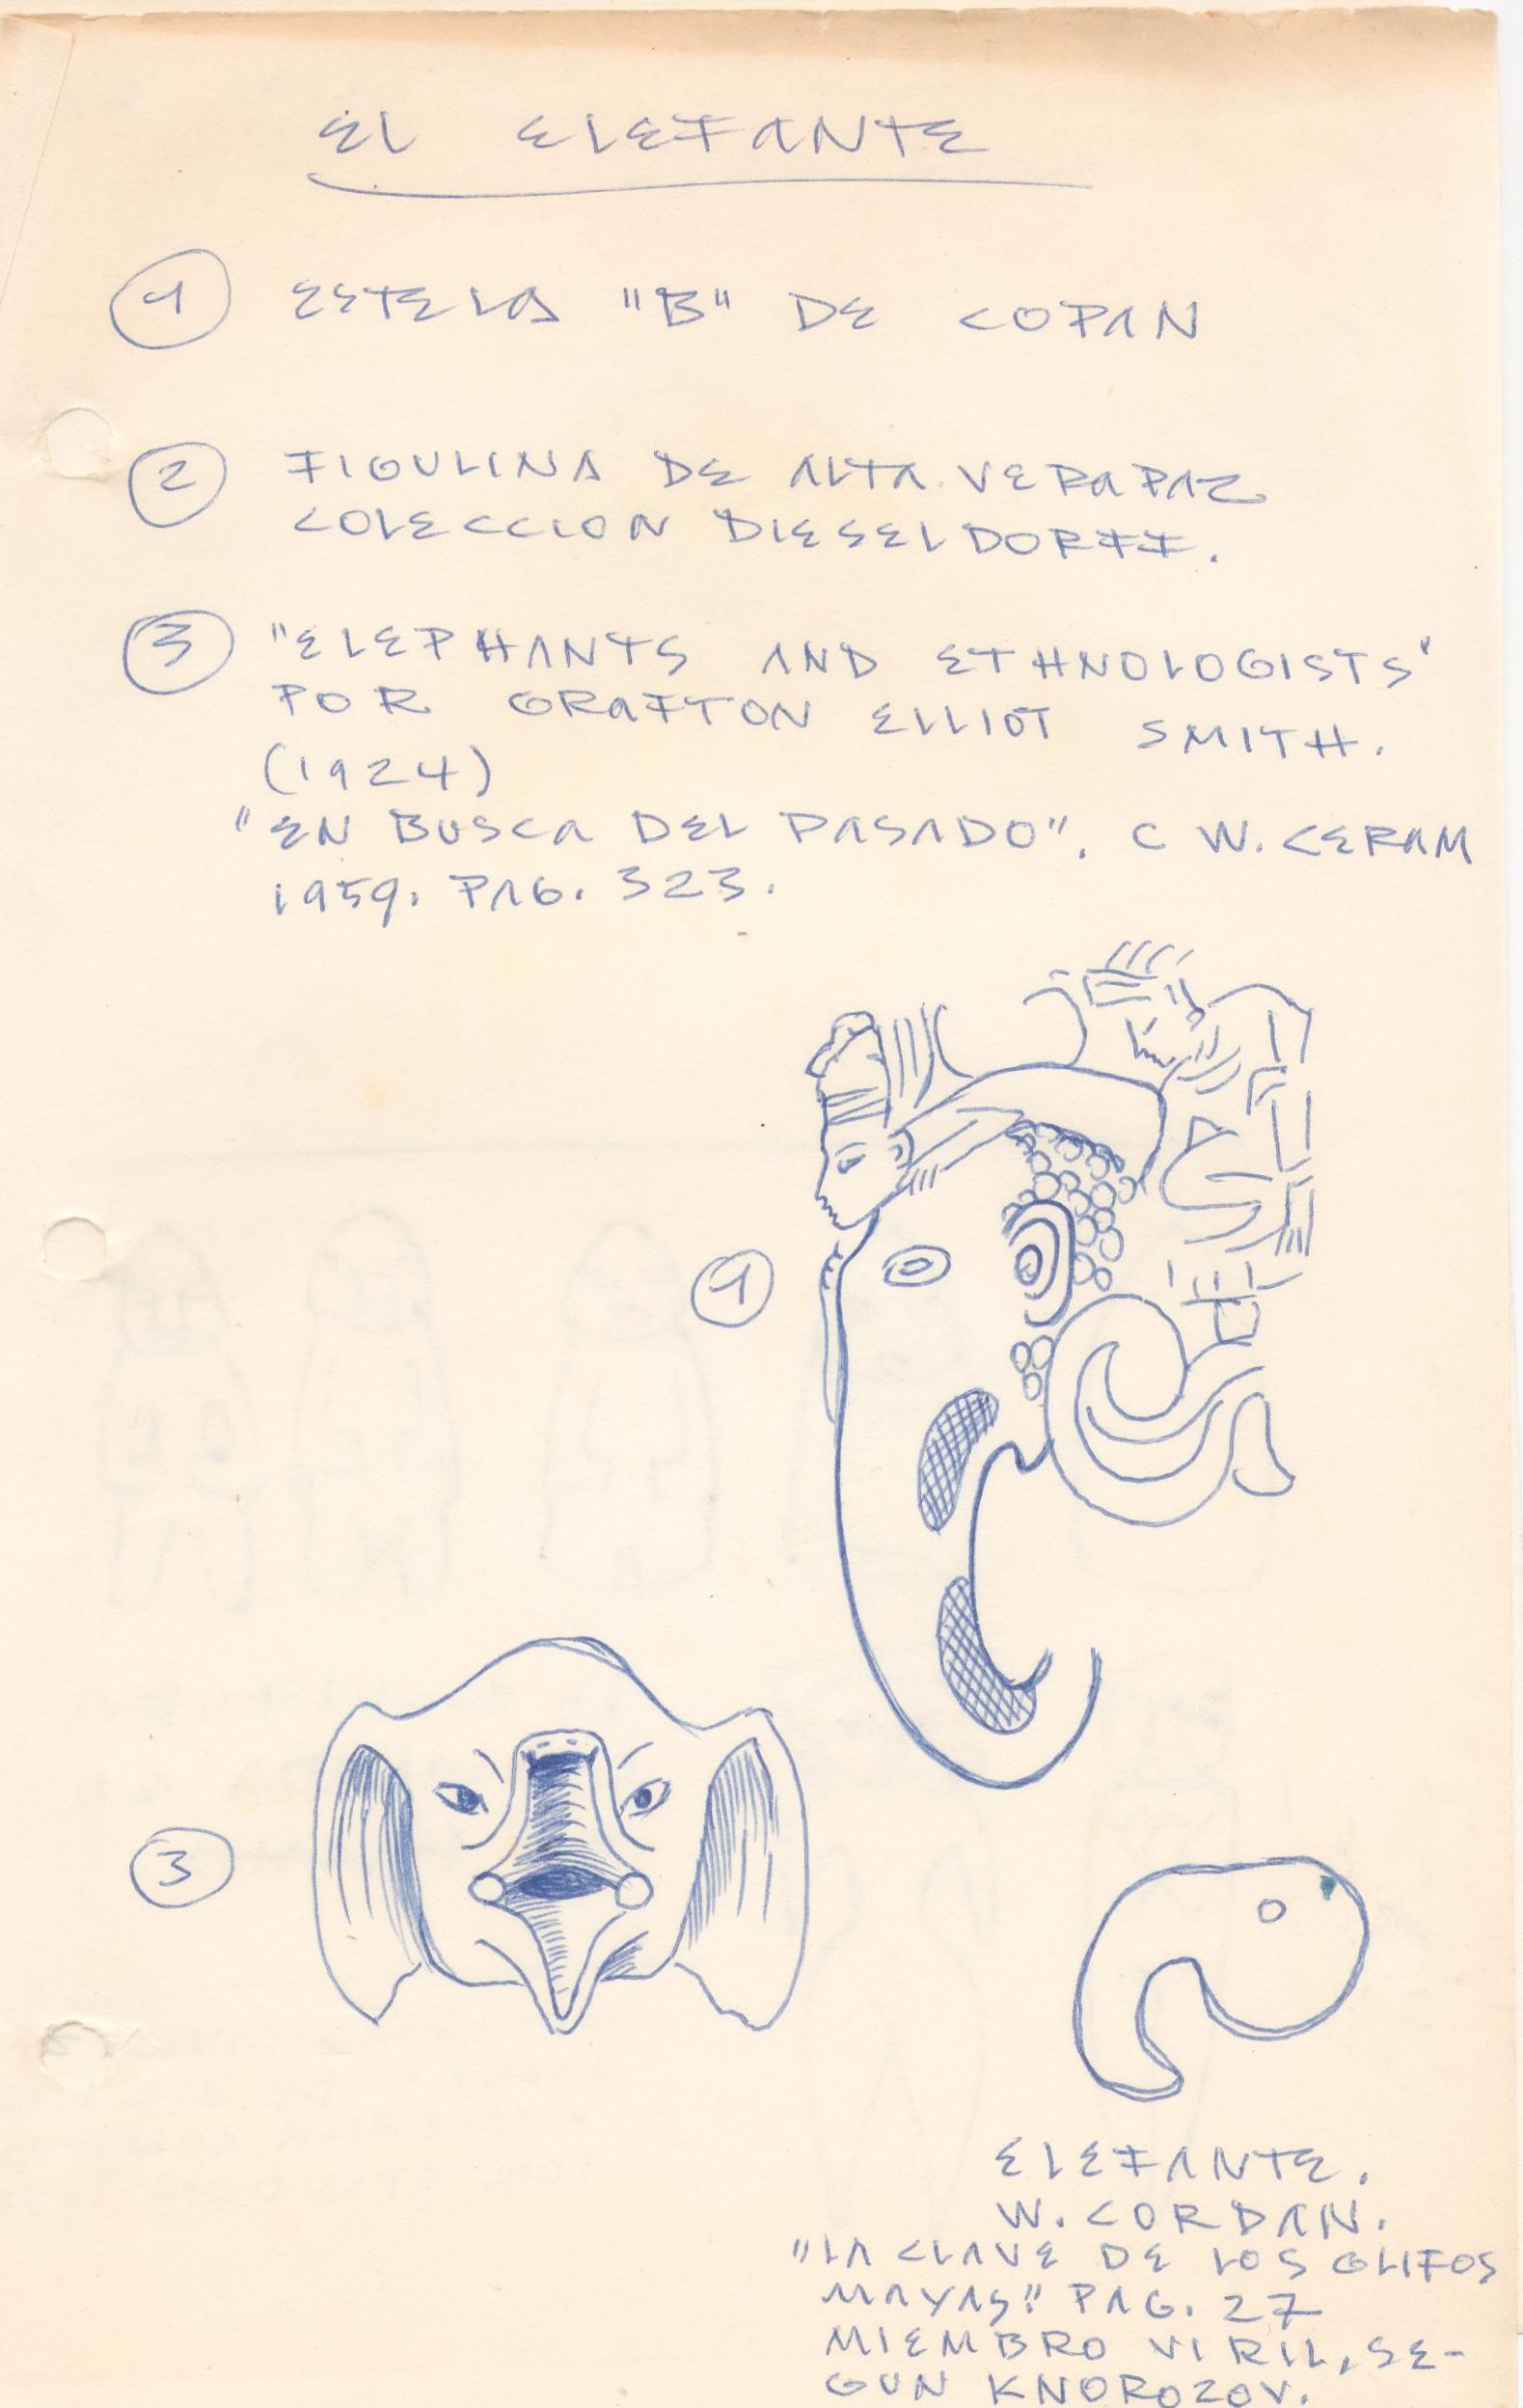 EL ELEFANTE
1 ESTELA "B" DE COPAN
2 FIGULINA DE ALTA VERAPAZ
COLECCION DIESELDORFF.
3 "ELEPHANTS AND ETHNOLOGISTS"
POR GRAFTON ELLIOT SMITH.
(1924)
"EN BUSCA DEL PASADO". C W. CERAM
1959. PAG. 323.
1
3
ELEFANTE.
W. CORDAN.
"LA CLAVE DE LOS GLIFOS
MAYAS" PAG. 27
MIEMBRO VIRIL, SE-
GUN KNOROZOV.